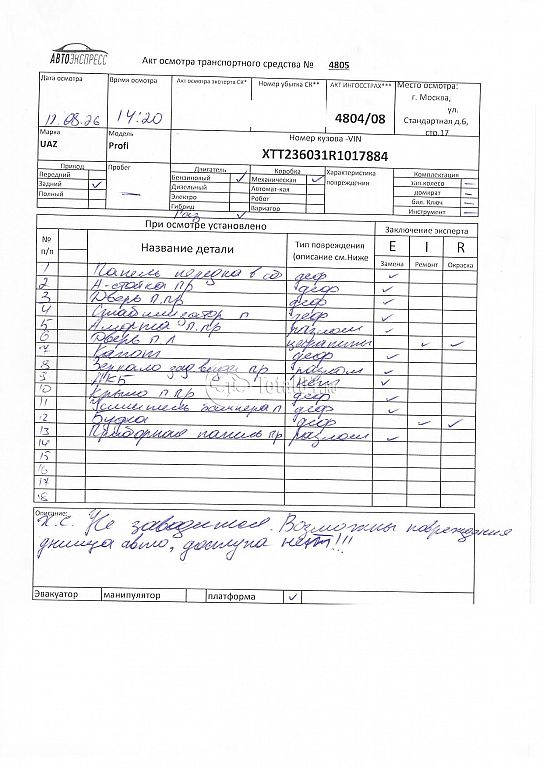 АВТОЭКСПРЕСС
Акт осмотра транспортного средства № 4805
Дата осмотра
Время осмотра
Акт осмотра эксперта СК*
Номер убытка СК**
АКТ ИНГОССТРАХ***
Место осмотра:
г. Москва,
ул.
Стандартная д.6,
стр.17
14:20
4804/08
Марка
UAZ
Модель
Profi
Номер кузова -VIN
XTT236031R1017884
Привод
Передний
Задний
Полный
Пробег
Двигатель
Бензиновый
Дизельный
Электро
Гибрид
Газ
Коробка
Механическая
Автомат-кая
Робот
Вариатор
Характеристика
повреждения
Комплектация
зап.колесо
домкрат
бал. Ключ
Инструмент
При осмотре установлено
Заключение эксперта
№
п/п
Название детали
Тип повреждения
(описание см.Ниже
E I R
Замена Ремонт Окраска
1 Панель передка в сб деф
2 А-стойка пр деф
3 Дверь п.пр деф
4 Стабилизатор п деф
5 Аморт-а п.пр разлом
6 Дверь п л царапины
7 Капот деф
8 Зеркало зад вида пр разлом
9 АКБ нет
10 Крыло п пр деф
11 Усилитель бампера п деф
12 Будка деф
13 Приборная панель пр разлом
14
15
16
17
18
Описание:
Х.С. Не заводится. Возможны повреждения
днища авто, доступа нет!!!
Эвакуатор манипулятор платформа